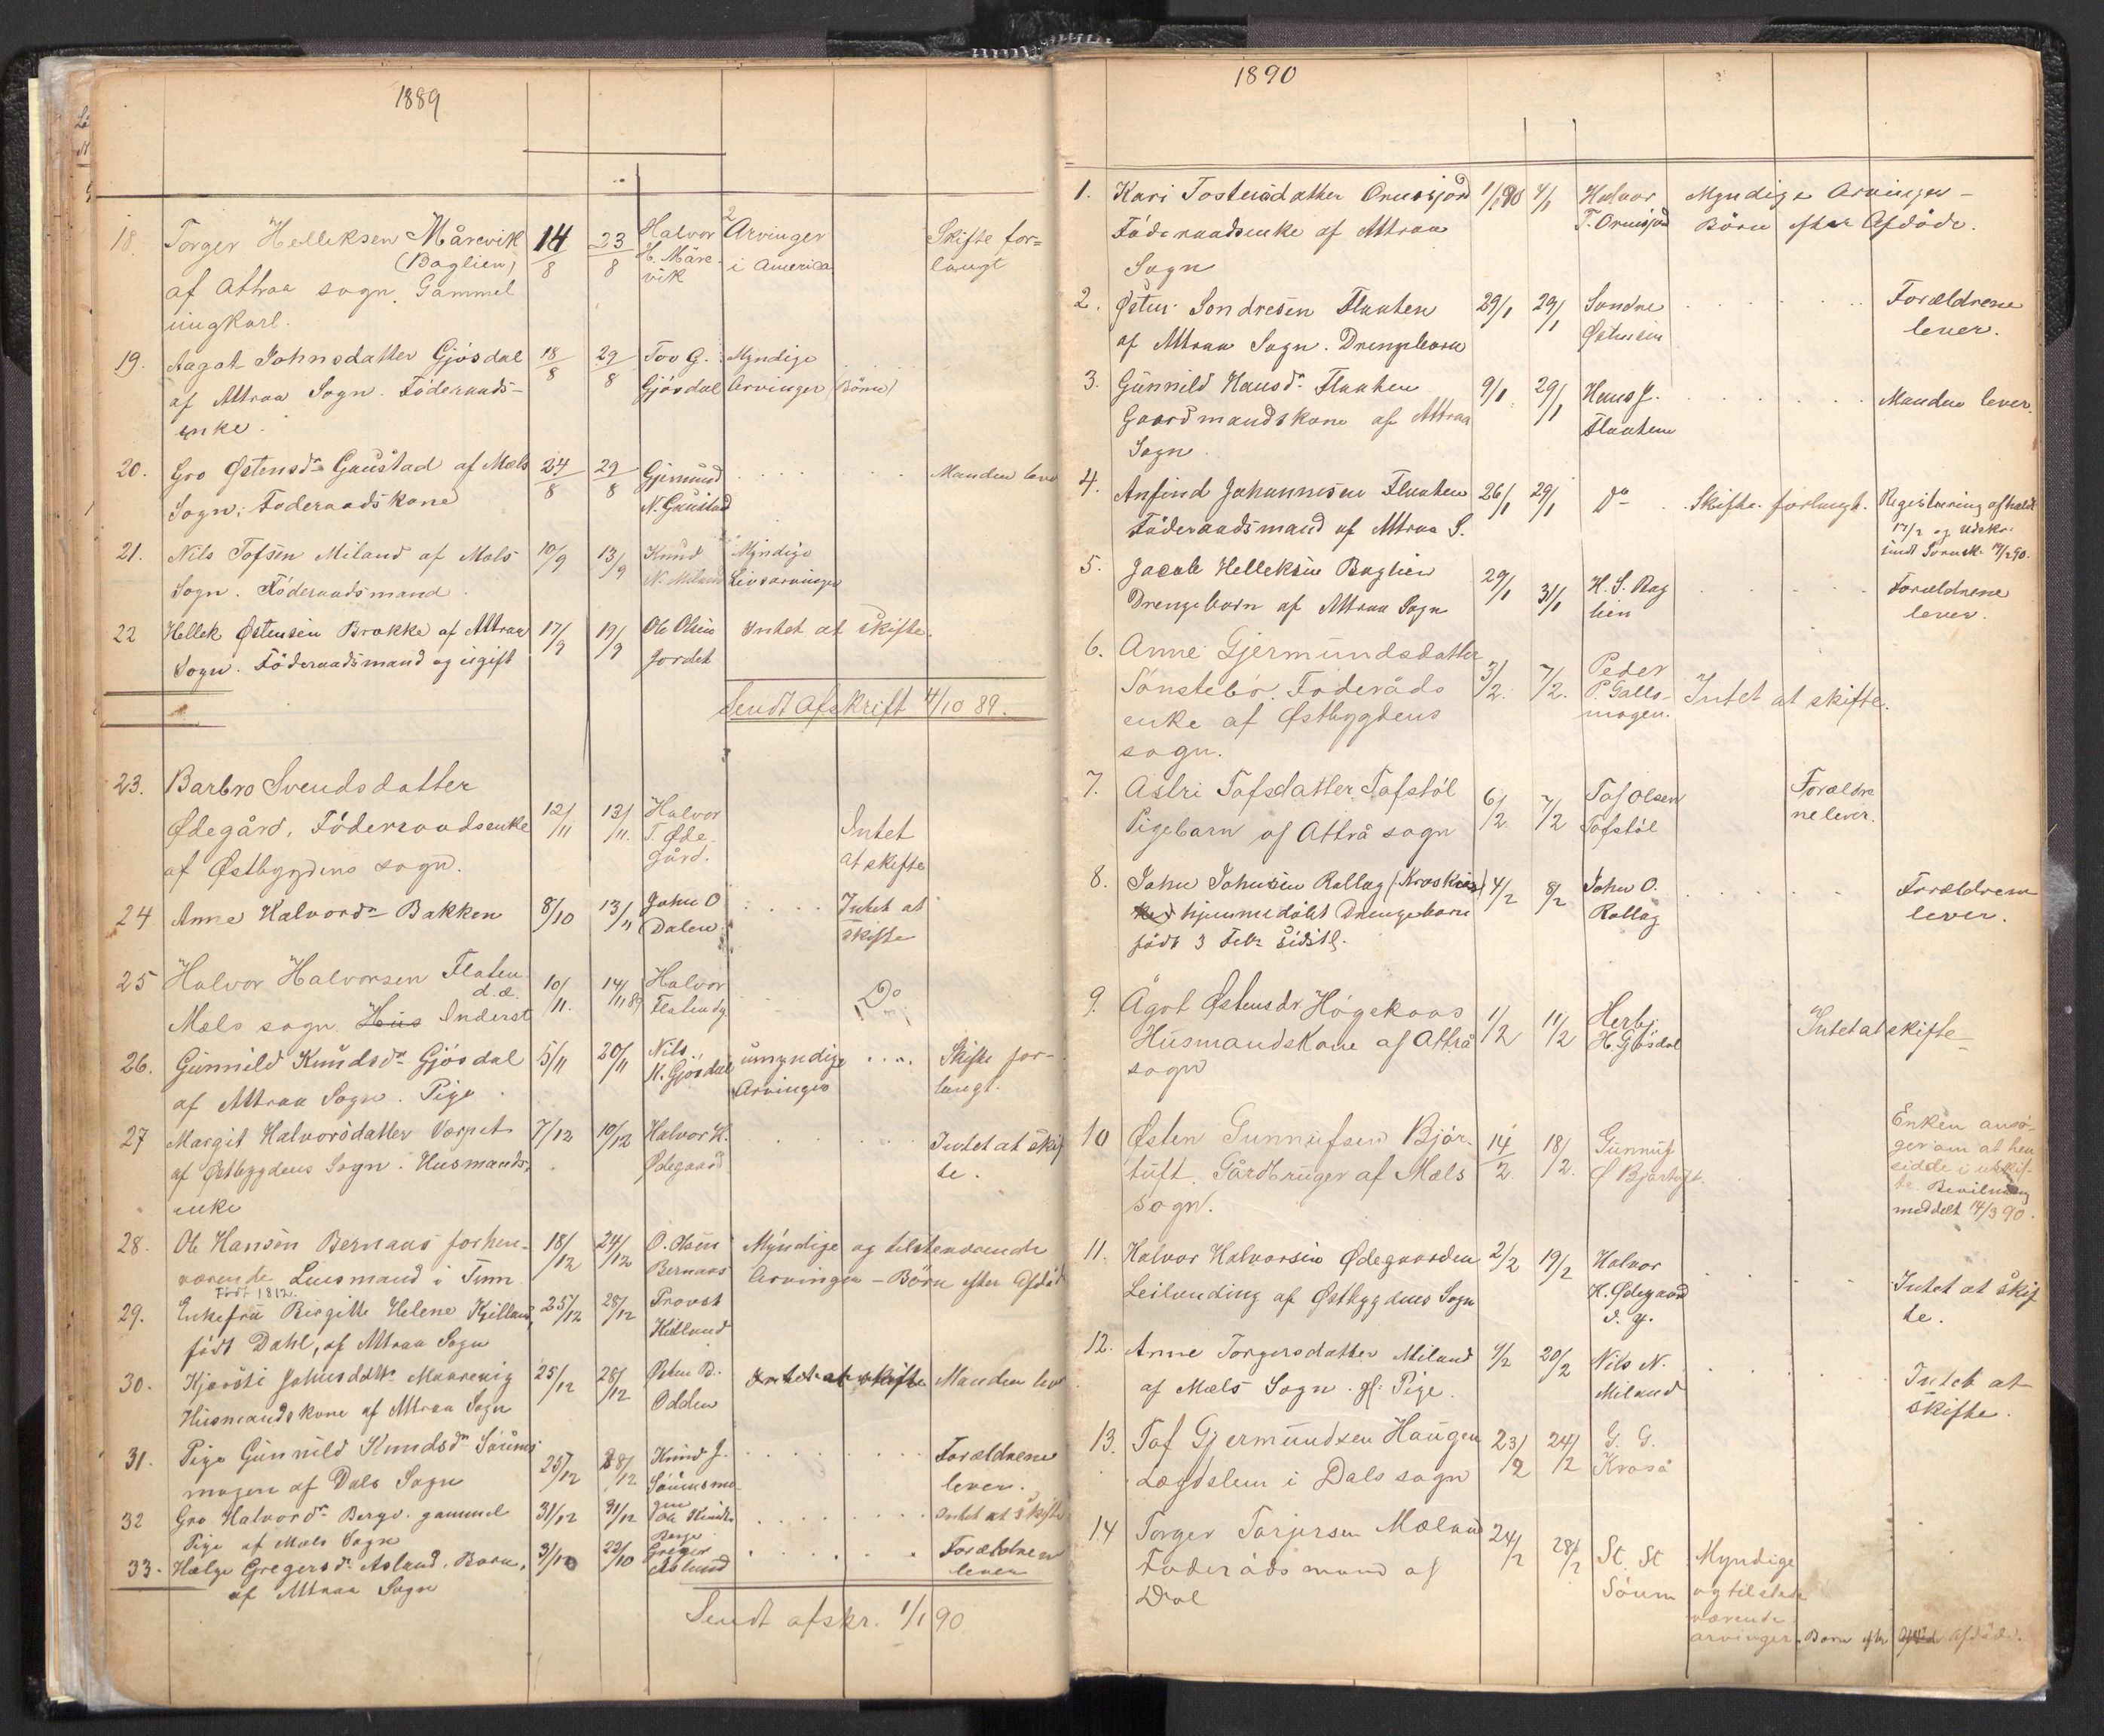 1889
18. Torger Helleksen Mårevik 14/8 23/8 Halvor H. Mårevik 2 Arvinger i America Skifte for=
(Baglien) langt
af Attraa sogn. Gammel
ungkarl.
19. Aagot Johnsdatter Gjösdal 18/8 29/8 Tov G. Myndige
af Attraa Sogn. Föderaads- Gjösdal Arvinger (Börn)
enke.
20. Gro Østensdr Gaustad af Mæls 24/8 29/8 Gjermund Manden lever
Sogn; Föderaadskone N. Gaustad
21. Nils Tofsen Miland af Mæls 10/9 13/9 Knud Myndige
Sogn. Föderaadsmand. N. Miland Livsarvinger
22 Hellek Østensen Brokke af Attraa 17/9 19/9 Ole Olsen Intet at skifte.
Sogn. Föderaadsmand og ugift Jordet
Sendt Afskrift 4/10 89.
23. Barbro Svendsdatter
Ødegård, Föderaadsenke 12/11 13/11 Halvor T. Ødegård. Intet
af Østbygdens sogn. at skifte
24 Anne Halvordr Bakken 8/10 13/11 John O Intet at
Dalen skifte
25 Halvor Halvorsen Flaten 10/11. 14/11 89 Halvor Do
d.æ. Flaten dy.
Mæls sogn. Hus Inderst
26. Gunnild Knudsdr Gjösdal 5/11 20/11 Nils umyndige Skifte for-
af Attraa Sogn. Pige. K. Gjösdal Arvinger langt.
27 Margit Halvorsdatter Varpet 7/12 10/12 Halvor H. Intet at skif
af Østbygdens Sogn. Husmands- Ødegaard te.
enke
28. Ole Hansen Bernaas forhen- 18/12 24/12 O. Olsen Myndige og tilstedværende
værende Lensmand i Tinn Bernaas Arvinger – Börn efter Afdöd
Födt 1812.
29. Enkefru Birgitte Helene Kielland, 25/12 28/12 Provst
født Dahl, af Attraa Sogn Kielland
30. Kjersti Johnsdattr Maarevig 25/12 28/12 Østen B. Intet at skifte Manden lev
Husmandskone af Attraa Sogn Odden
31. Pige Gunnild Knudsdr Söums 25/12 28/12 Knud J. Forældrene
mogen af Dals Sogn Söumsmo- lever.
gen
32 Gro Halvordr Berge. gammel 31/12 31/12 Intet at skifte
Pige af Mæls Sogn Berge
33. Hælge Gregersdr Asland. Barn. 31/10 22/10 Greger Forældren
af Attraa Sogn Asland lever
Sendt afskr. 1/1 90
1890
1. Kari Tostensdatter Ormsjord 1/1 90 4/1 Halvor Myndige Arvinger –
Föderaadsenke af Attraa T. Ormsjord Börn efter Afdöde.
Sogn
2. Østen Sondresen Flaaten 29/1 29/1 Sondre Forældrene
af Attraa Sogn. Drengebarn Østensen lever.
3. Gunnild Hansdr Flaaten 9/1 29/1 Hans J. Manden lever.
Gaardmandskone af Attraa Flaaten
Sogn.
4. Anfind Johannesen Flaaten 26/1 29/1 do Skifte forlangt. Registrering afholdt
Föderaadsmand af Attraa S. 17/2 og Udskr.
sendt Sorensk. 19/2 90.
5. Jacob Helleksen Baglien 29/1 31/1 H. S. Bag Forældrene
Drengebarn af Attraa Sogn lien lever.
6. Anne Gjermundsdatter
Sönstebö. Föderåds 3/2. 7/2. Peder P. Gallsmogen. Intet at skifte.
enke af Østbygdens
sogn.
7. Astri Tofsdatter Tofstöl 6/2. 7/2 Tof Olsen Forældre
Pigebarn af Attrå sogn Tofstöl ne lever.
8. John Johnsen Rollag (Kroskrin) 4/2 8/2 John O. Forældrene
hjemmedöbt Drengebarn Rollag lever.
födt 3 Febr sidstl.
9. Ågot Østensdr Högekaas 1/2 11/2 Herbj. Intet at skifte –
Husmandskone af Attrå H. Gjösdal
sogn
10 Østen Gunnufsen Björ- 14/2 18/2. Gunnuf Enken ansö-
tuft. Gårdbruger af Mæls Ø Bjortuft. ger om at hen
sogn. sidde i uskif-
te. Bevilning
meddelt 14/3 90.
11. Halvor Halvorsen Ødegaarden 2/2 19/2 Halvor Intet at skif
Leilending af Østbygdens Sogn H. Ødegaard te.
d. y.
12. Anne Torgersdatter Miland 9/2 20/2 Nils N. Intet at
af Mæls Sogn. gl. Pige. Miland skifte.
13. Tof Gjermundsen Haugen 23/2 24/2 G. G.
Lægdslem i Dals sogn Kroså
14 Torger Torjersen Mæland 24/2 28/2 St. St Myndige
Föderåds mand af Söum og tilstede
Dal værende
arvinger. Börn efter Afdöde.